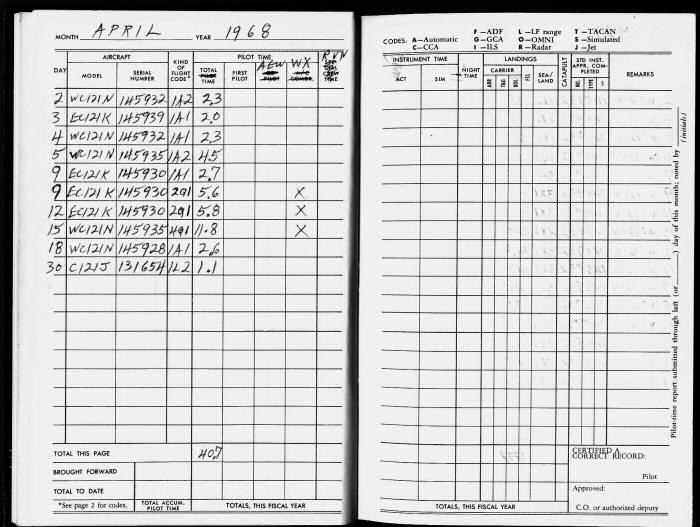 MONTH APRIL YEAR 1968
AIRCRAFT
PILOT TIME
DAY
MODEL
SERIAL NUMBER
KIND OF FLIGHT CODE*
TOTAL PILOT TIME
FIRST PILOT
AEW
WX
RVN
2 WC121N 145932 1A2 2.3
3 EC121K 145939 1A1 2.0
4 WC121N 145932 1A1 2.3
5 WC121N 145935 1A2 4.5
9 EC121K 145930 1A1 2.7
9 EC121K 145930 2Q1 5.6 X
12 EC121K 145930 2Q1 5.8 X
15 WC121N 145935 4Q1 11.8 X
18 WC121N 145928 1A1 2.6
30 C121J 131654 1L2 1.1
TOTAL THIS PAGE 40.7
BROUGHT FORWARD
TOTAL TO DATE
*See page 2 for codes.
TOTAL ACCUM. PILOT TIME
TOTALS, THIS FISCAL YEAR
CODES: A—Automatic
C—CCA
F—ADF
G—GCA
I—ILS
L—LF range
O—OMNI
R—Radar
T—TACAN
S—Simulated
J—Jet
INSTRUMENT TIME
ACT
SIM
NIGHT TIME
LANDINGS
CARRIER
ARR
T&G
BOL
FCL
SEA/ LAND
CATAPULT
STD INST. APPR. COM- PLETED
NO.
TYPE
S
REMARKS
Pilot-time report submitted through last (or ____) day of this month; noted by ____
(initials)
CERTIFIED A
CORRECT RECORD:
Pilot
Approved:
C.O. or authorized deputy
TOTALS, THIS FISCAL YEAR